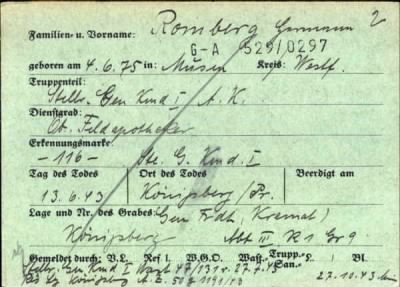 Familien- u. Vorname: Romberg Hermann 2
G-A 529/0297
geboren am 4.6.75 in: Müsen Kreis: Westf.
Truppenteil:
Stellv. Gen Kmd I A.K.
Dienstgrad:
Ob. Feldapotheker
Erkennungsmarke:
-116- Ste. G. Kmd. I
Tag des Todes Ort des Todes Beerdigt am
13.6.43 Königsberg/Pr.
Lage und Nr. des Grabes: Gem Frdh, Kremat)
Königsberg Abt III R1 Gr 9
Gemeldet durch: V.L. Ref I W.G.O. Wast Trupp.- San.- L. Bl.
Stellv. Gen Kmd I Wast 47/131 v. 27.7.43
27.10.43